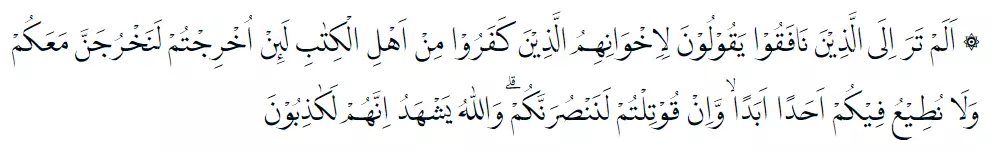 ۞ اَلَمْ تَرَ اِلَى الَّذِيْنَ نَافَقُوْا يَقُوْلُوْنَ لِاِخْوَانِهِمُ الَّذِيْنَ كَفَرُوْا مِنْ اَهْلِ الْكِتٰبِ لَىِٕنْ اُخْرِجْتُمْ لَنَخْرُجَنَّ مَعَكُمْ
وَلَا نُطِيْعُ فِيْكُمْ اَحَدًا اَبَدًاۙ وَّاِنْ قُوْتِلْتُمْ لَنَنْصُرَنَّكُمْۗ وَاللّٰهُ يَشْهَدُ اِنَّهُمْ لَكٰذِبُوْنَ